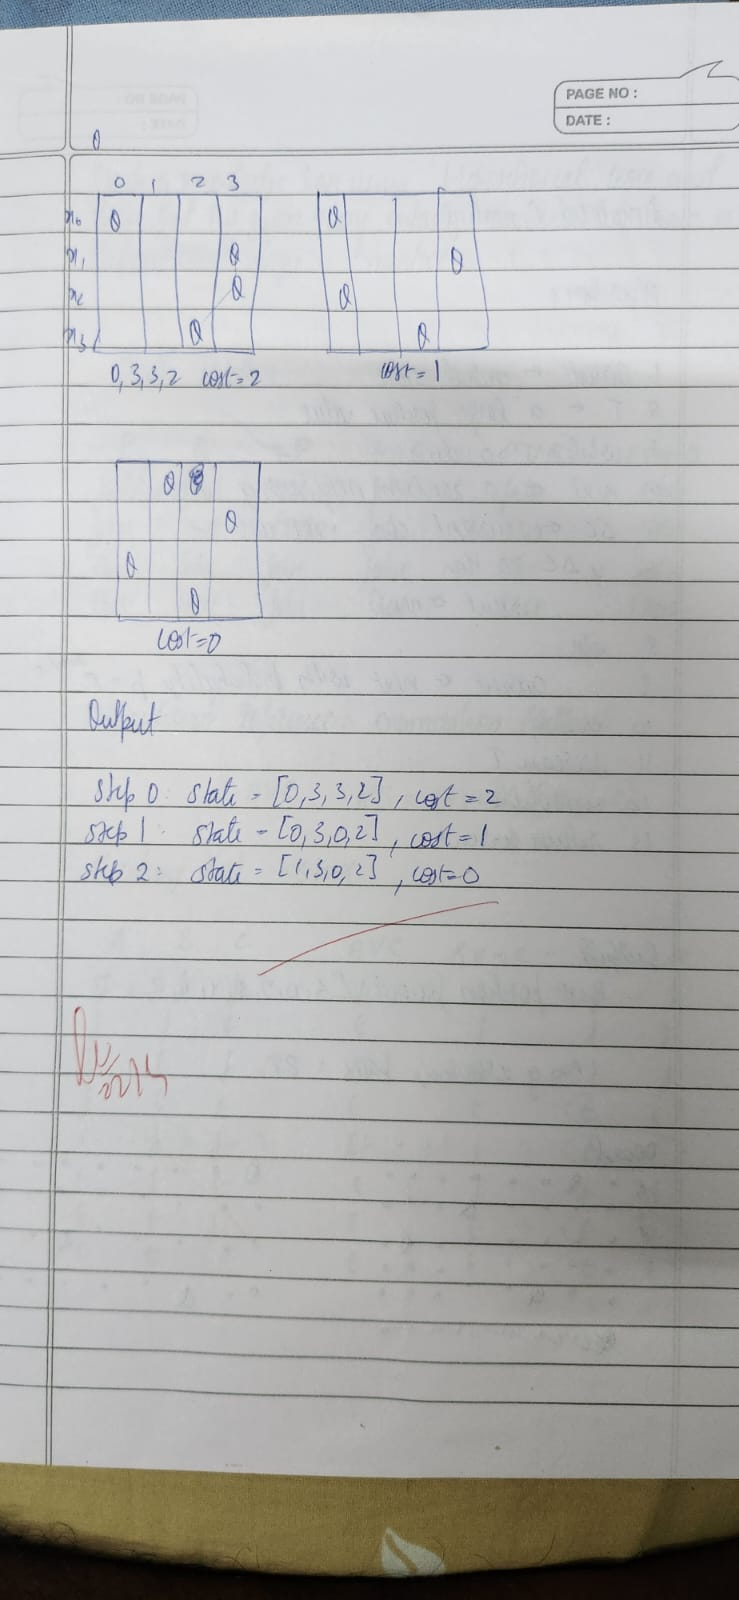 PAGE NO :
DATE :
0 1 2 3
x0 Q
x1 Q
x2 Q
x3 Q
0,3,3,2 cost=2
Q
Q
Q
Q
cost=1
Q
Q
Q
Q
cost=0
Output
Step 0: state = [0,3,3,2], cost=2
step 1: state = [0,3,0,2], cost=1
step 2: state = [1,3,0,2], cost=0